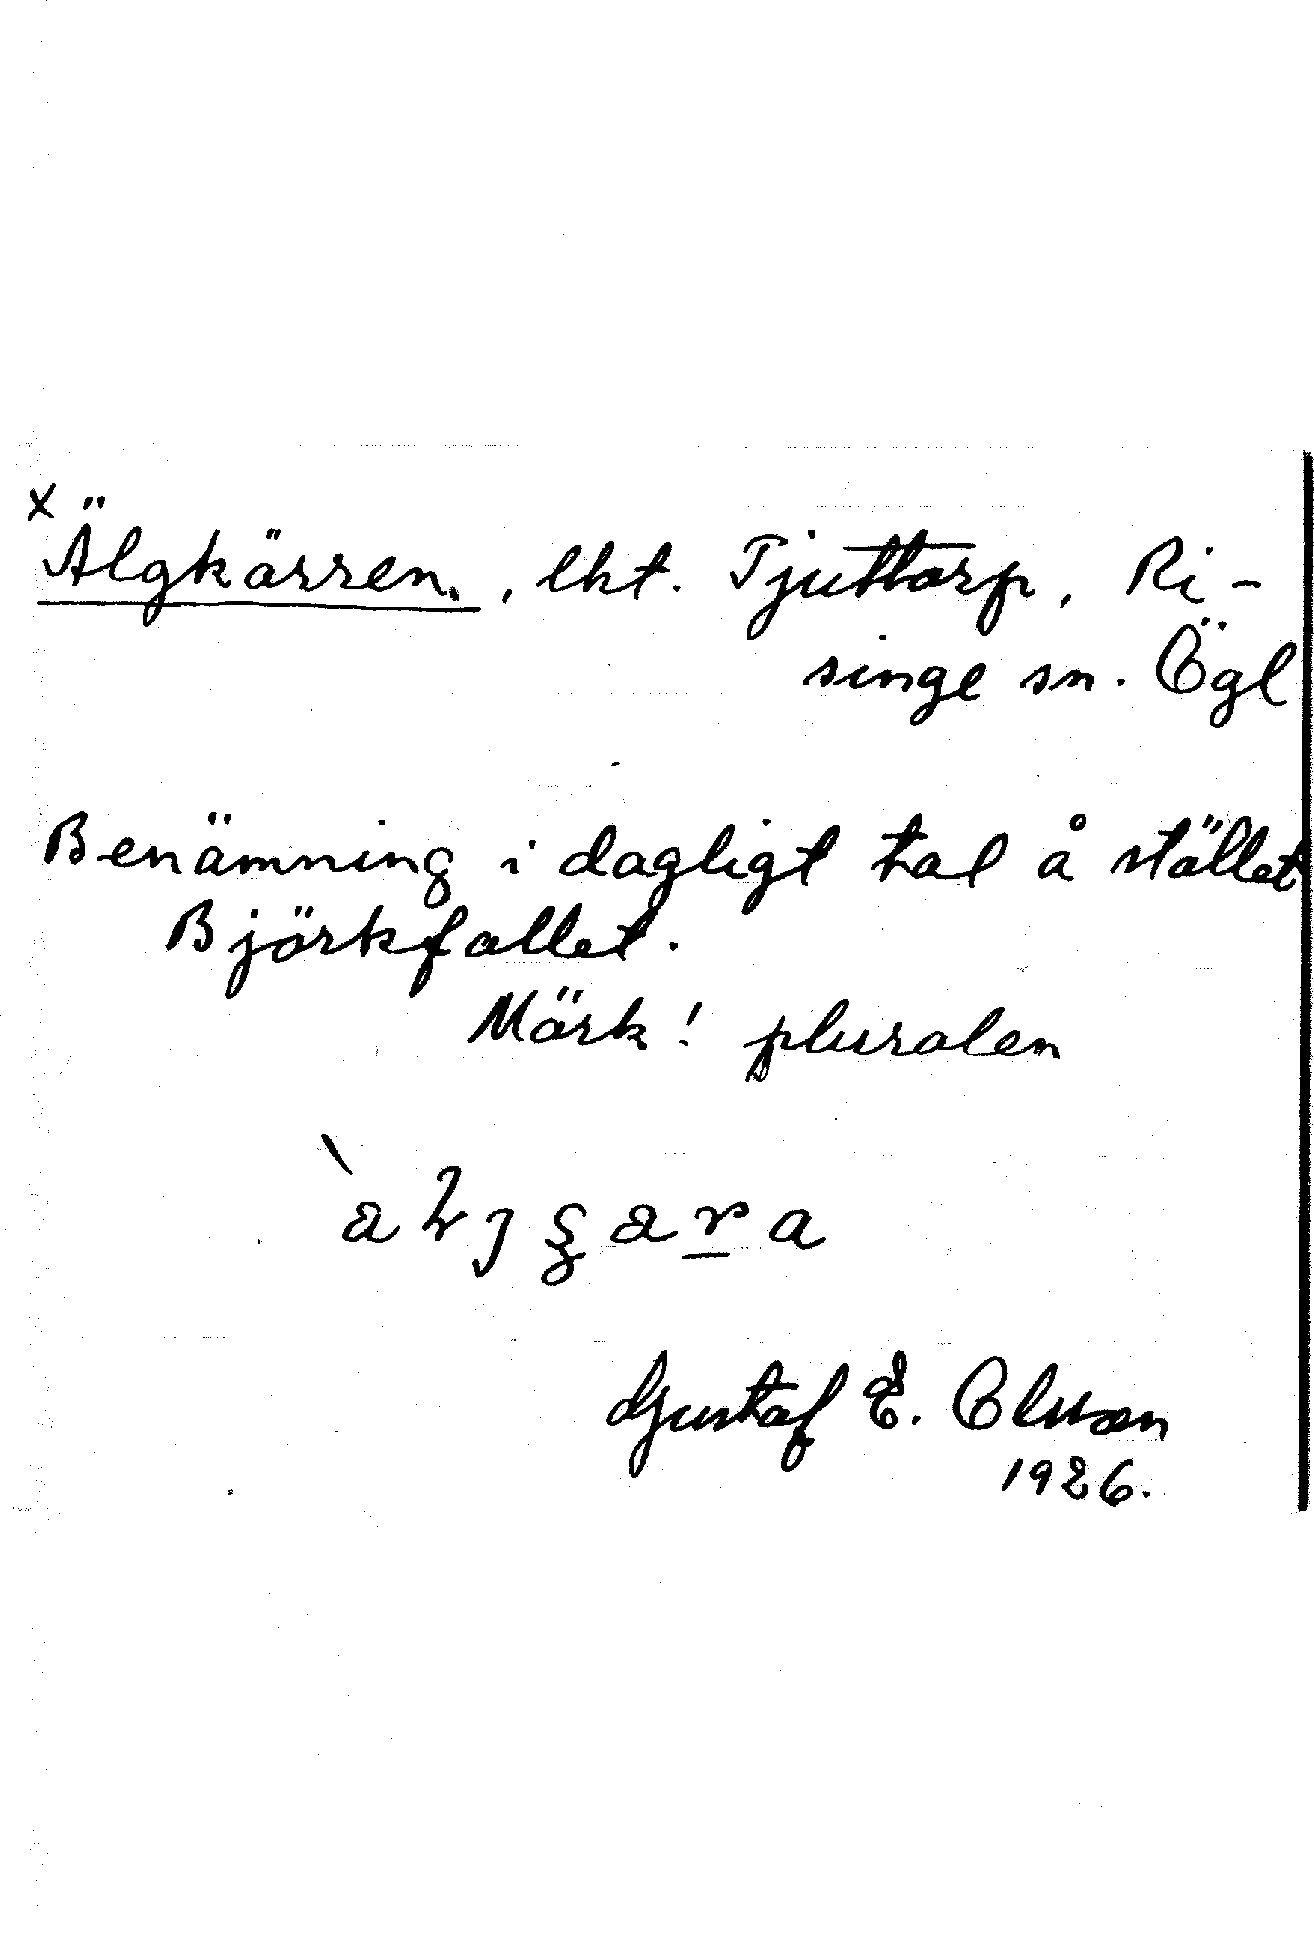 x
Älgkärren., lht. Tjuttorp, Ri-
singe sn. Ögl
Benämning i dagligt tal å stället
Björkfallet.
Märk! pluralen
Gustaf E. Olsson
1926.